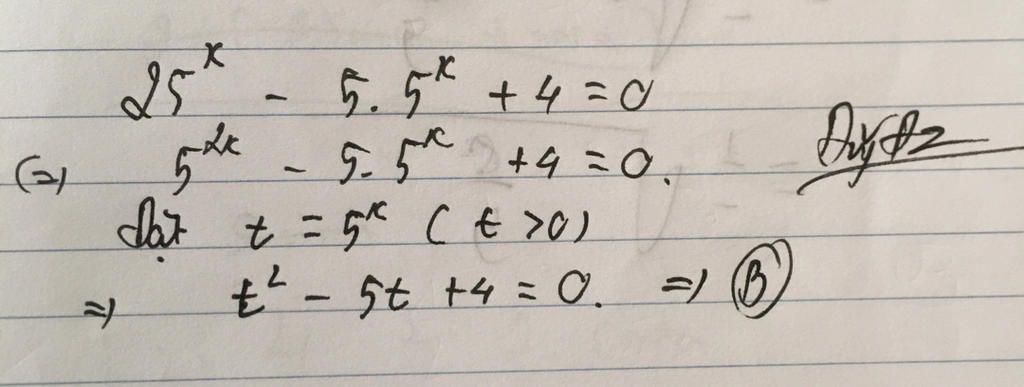 25^x - 5. 5^x + 4 = 0
(=) 5^2x - 5. 5^x + 4 = 0.
đặt t = 5^x ( t > 0)
=) t^2 - 5t + 4 = 0. =) B